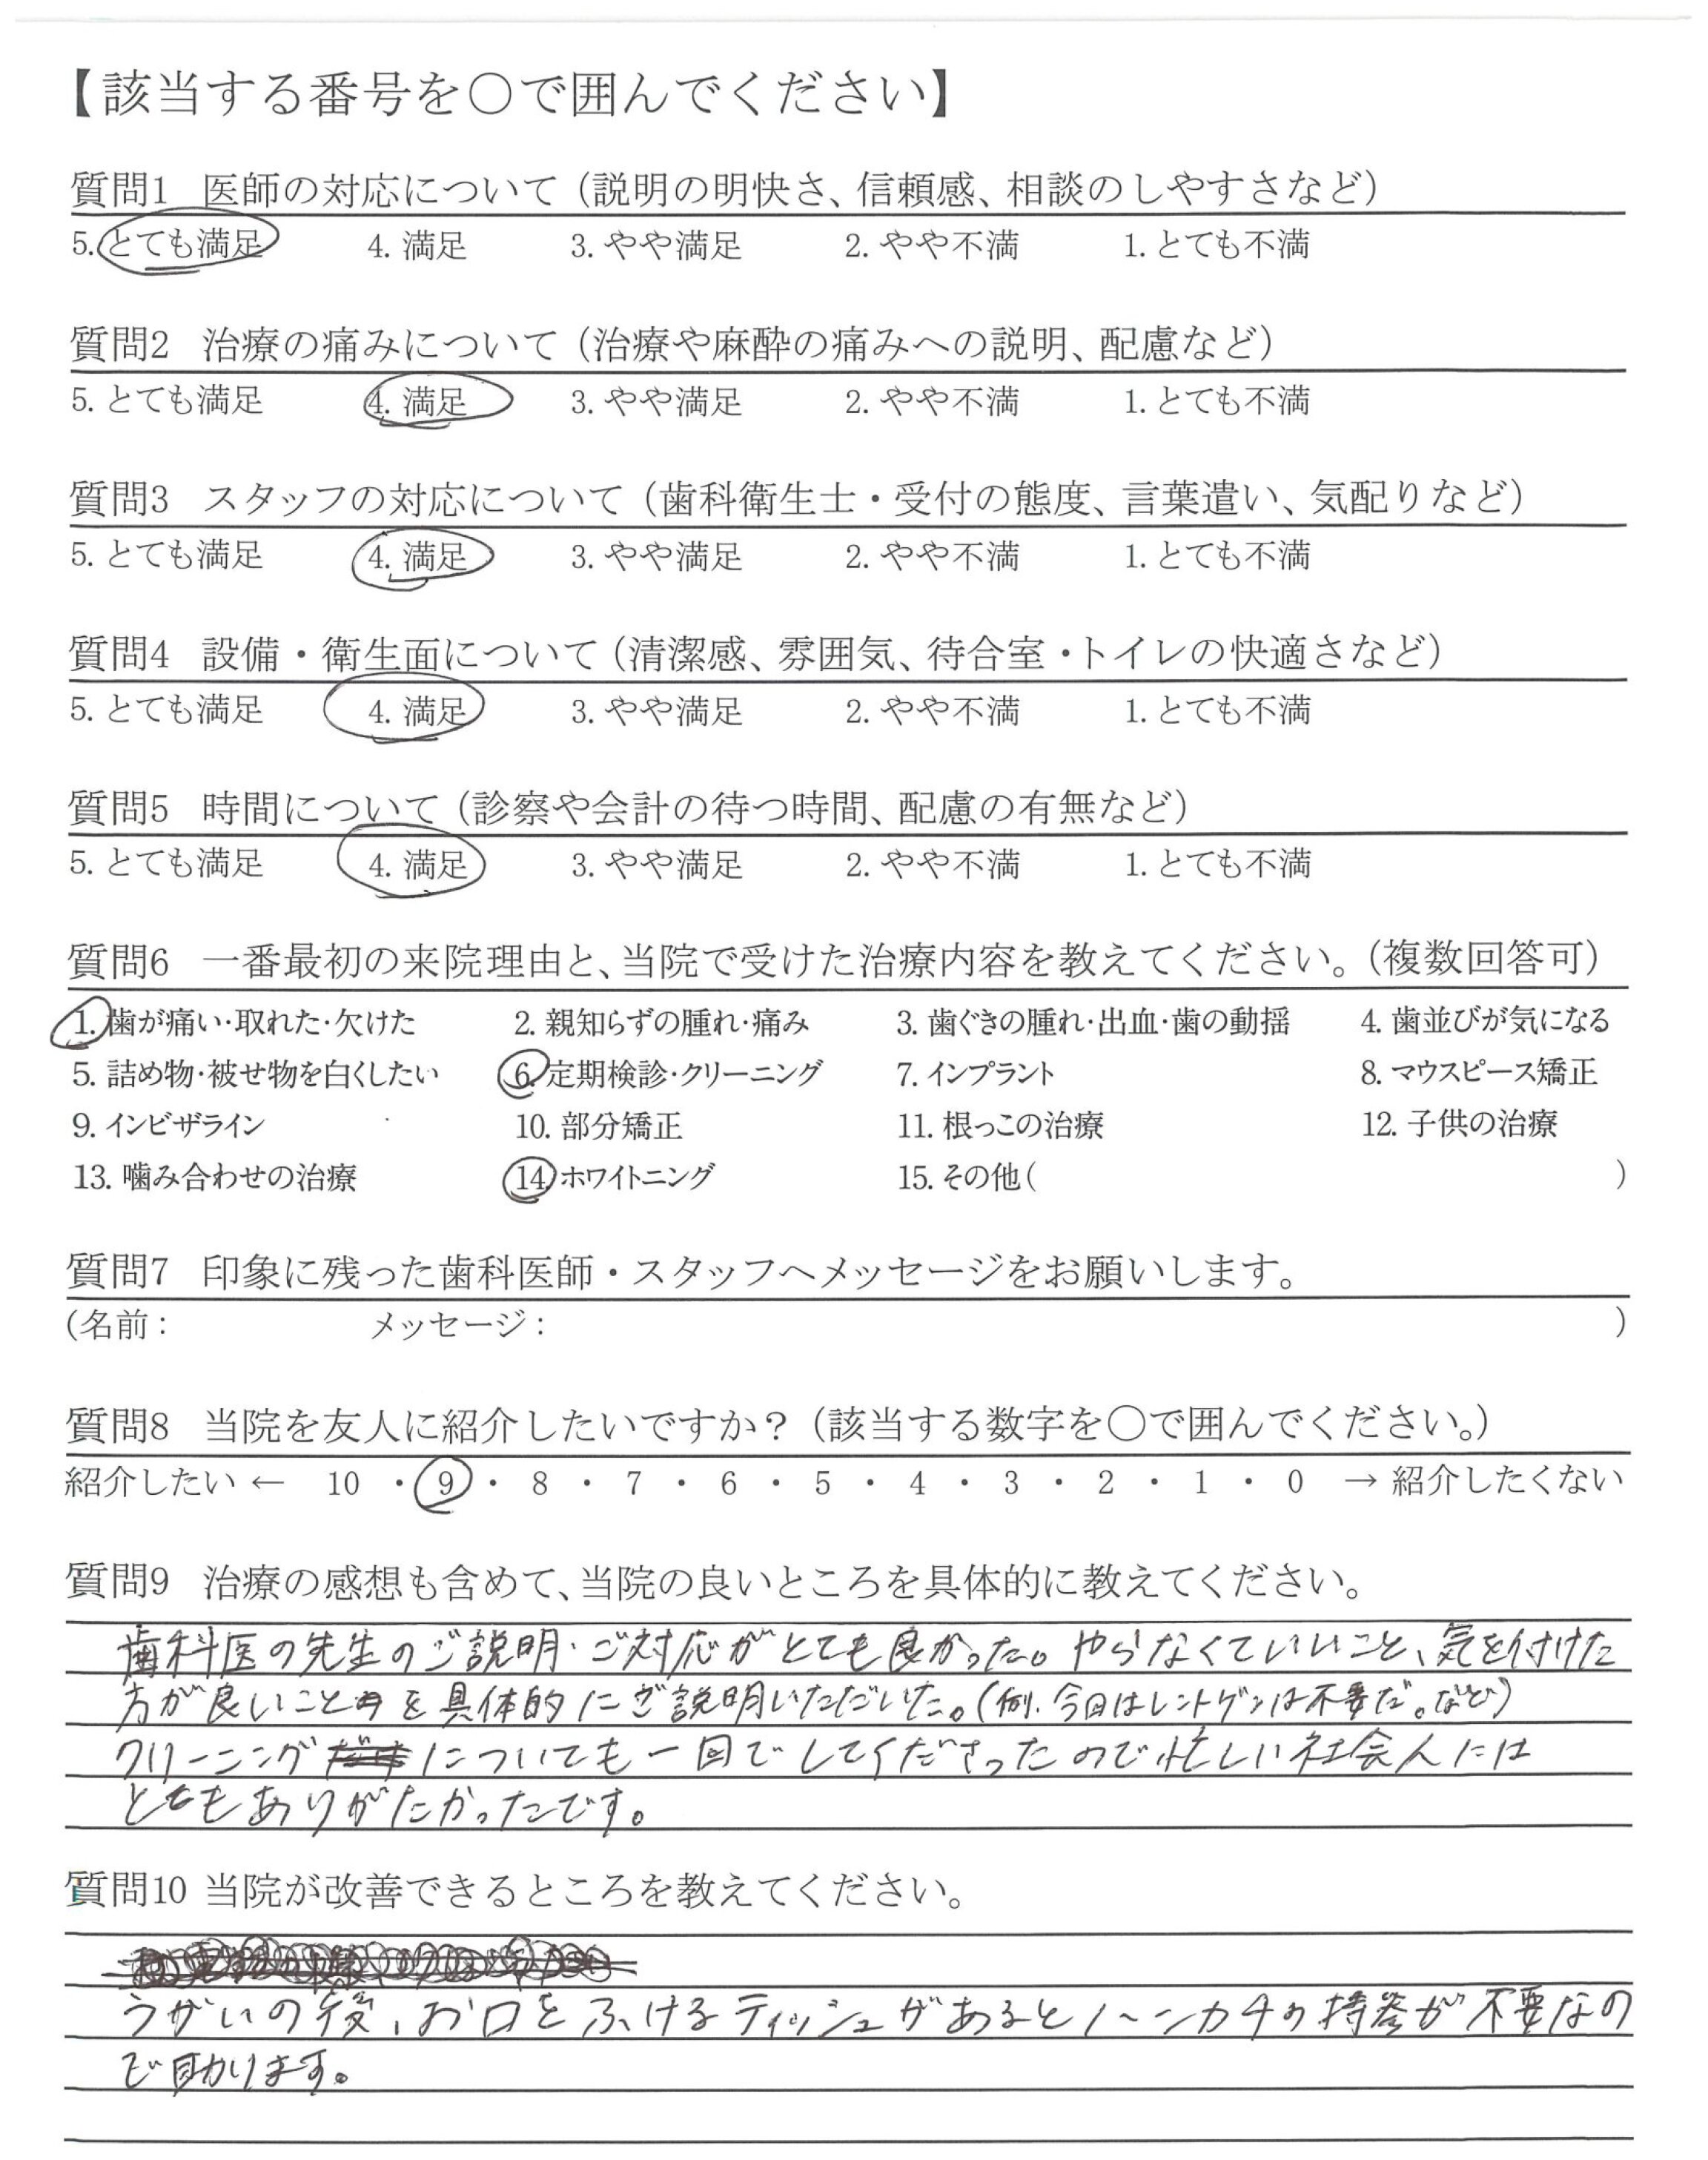 【該当する番号を○で囲んでください】
質問1 医師の対応について（説明の明快さ、信頼感、相談のしやすさなど）
5. とても満足 4. 満足 3. やや満足 2. やや不満 1. とても不満
質問2 治療の痛みについて（治療や麻酔の痛みへの説明、配慮など）
5. とても満足 4. 満足 3. やや満足 2. やや不満 1. とても不満
質問3 スタッフの対応について（歯科衛生士・受付の態度、言葉遣い、気配りなど）
5. とても満足 4. 満足 3. やや満足 2. やや不満 1. とても不満
質問4 設備・衛生面について（清潔感、雰囲気、待合室・トイレの快適さなど）
5. とても満足 4. 満足 3. やや満足 2. やや不満 1. とても不満
質問5 時間について（診察や会計の待つ時間、配慮の有無など）
5. とても満足 4. 満足 3. やや満足 2. やや不満 1. とても不満
質問6 一番最初の来院理由と、当院で受けた治療内容を教えてください。（複数回答可）
1. 歯が痛い・取れた・欠けた 2. 親知らずの腫れ・痛み 3. 歯ぐきの腫れ・出血・歯の動揺 4. 歯並びが気になる
5. 詰め物・被せ物を白くしたい 6. 定期検診・クリーニング 7. インプラント 8. マウスピース矯正
9. インビザライン 10. 部分矯正 11. 根っこの治療 12. 子供の治療
13. 噛み合わせの治療 14. ホワイトニング 15. その他（ ）
質問7 印象に残った歯科医師・スタッフへメッセージをお願いします。
（名前： メッセージ： ）
質問8 当院を友人に紹介したいですか？（該当する数字を○で囲んでください。）
紹介したい ← 10 ・ 9 ・ 8 ・ 7 ・ 6 ・ 5 ・ 4 ・ 3 ・ 2 ・ 1 ・ 0 → 紹介したくない
質問9 治療の感想も含めて、当院の良いところを具体的に教えてください。
歯科医の先生のご説明・ご対応がとても良かった。やらなくていいこと、気を付けた
方が良いことを具体的にご説明いただいた。（例. 今日はレントゲンは不要だ。など）
クリーニングについても一回でしてくださったので忙しい社会人には
とてもありがたかったです。
質問10 当院が改善できるところを教えてください。
うがいの後、お口をふけるティッシュがあるとハンカチの持参が不要なの
で助かります。